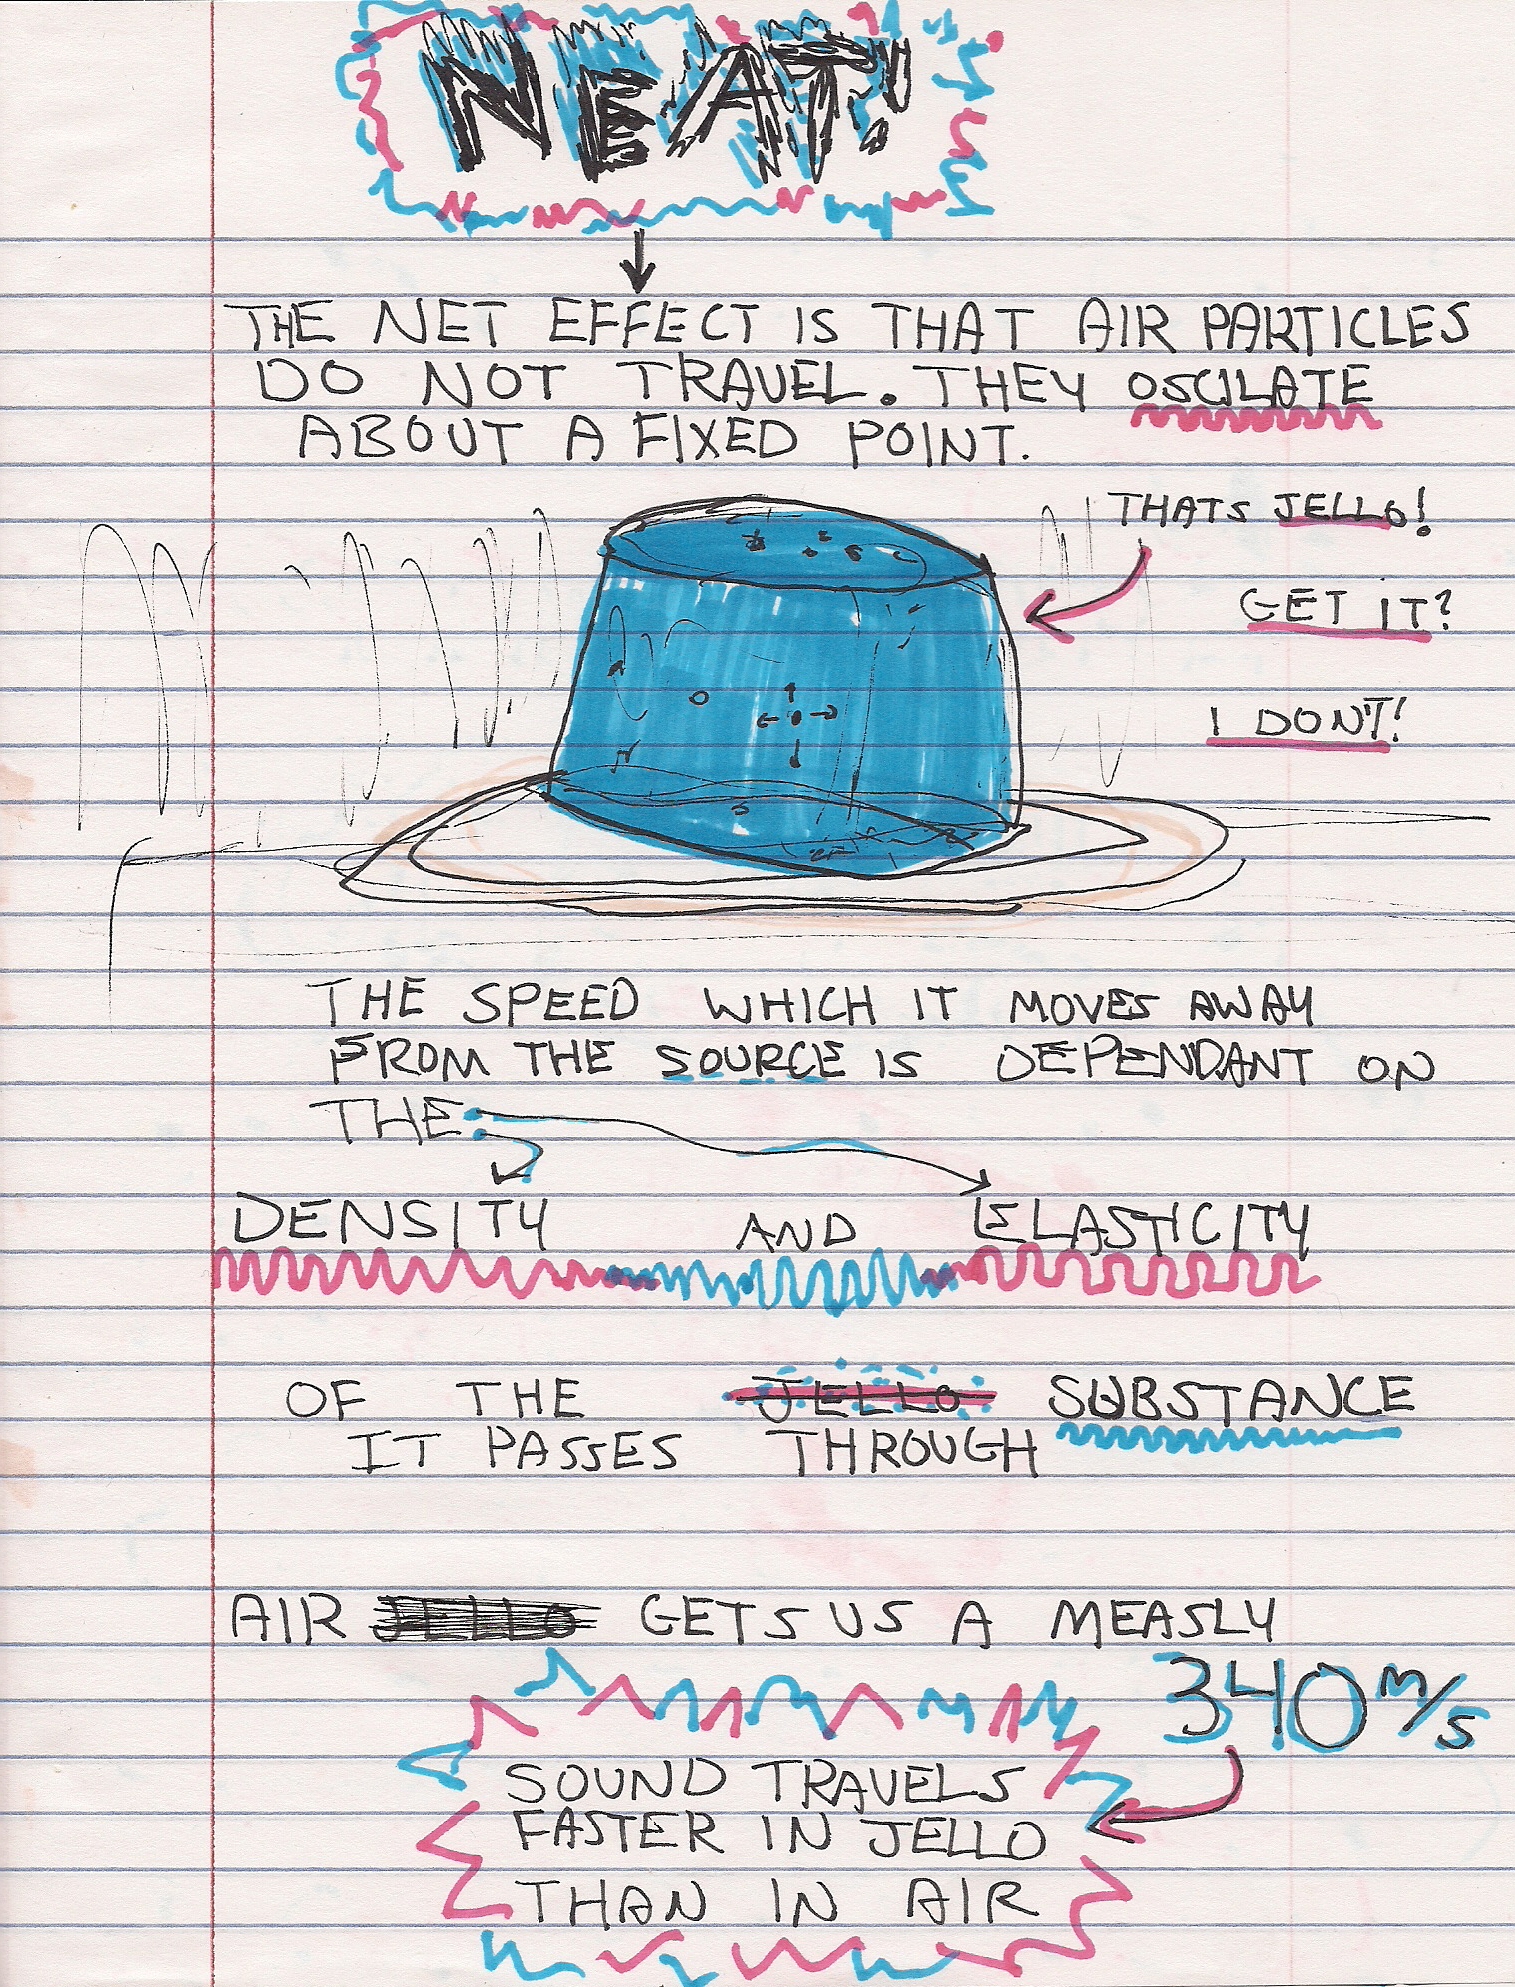 NEAT!
THE NET EFFECT IS THAT AIR PARTICLES
DO NOT TRAVEL. THEY OSCILATE
ABOUT A FIXED POINT.
THATS JELLO!
GET IT?
I DON'T!
THE SPEED WHICH IT MOVES AWAY
FROM THE SOURCE IS DEPENDANT ON
THE
DENSITY AND ELASTICITY
OF THE JELLO SUBSTANCE
IT PASSES THROUGH
AIR JELLO GETS US A MEASLY
340 m/s
SOUND TRAVELS
FASTER IN JELLO
THAN IN AIR